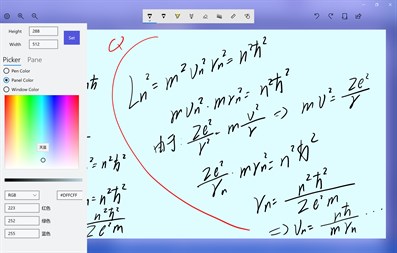 Height: 288
Width: 512
Set
Picker Pane
Pen Color
Panel Color
Window Color
浅蓝
RGB #DFFCFF
223 红色
252 绿色
255 蓝色
Q
Lₙ² = m²υₙ²rₙ² = n²ħ²
mυₙ²·mrₙ² = n²ħ²
由于 Ze²/r² = m υ²/r ⇒ mυ² = Ze²/r
Ze²/rₙ · mrₙ² = n²ħ²
rₙ = n²ħ²/Ze²m
⇒ υₙ = nħ/mrₙ ...
= n²ħ²
n²ħ²
Ze²m